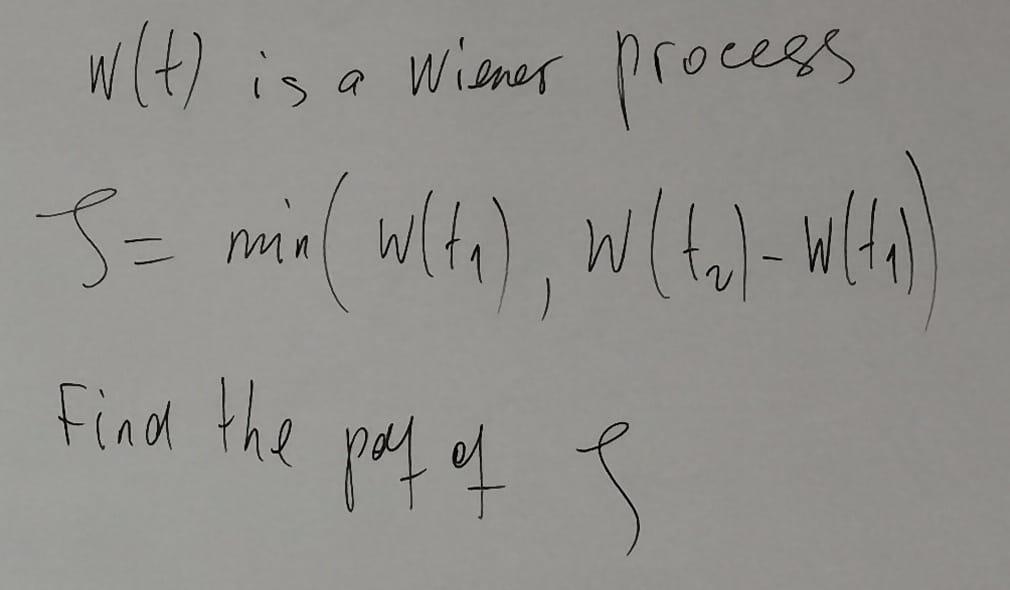 W(t) is a Wiener process
ζ = min(W(t₁), W(t₂) - W(t₁))
Find the pdf of ζ